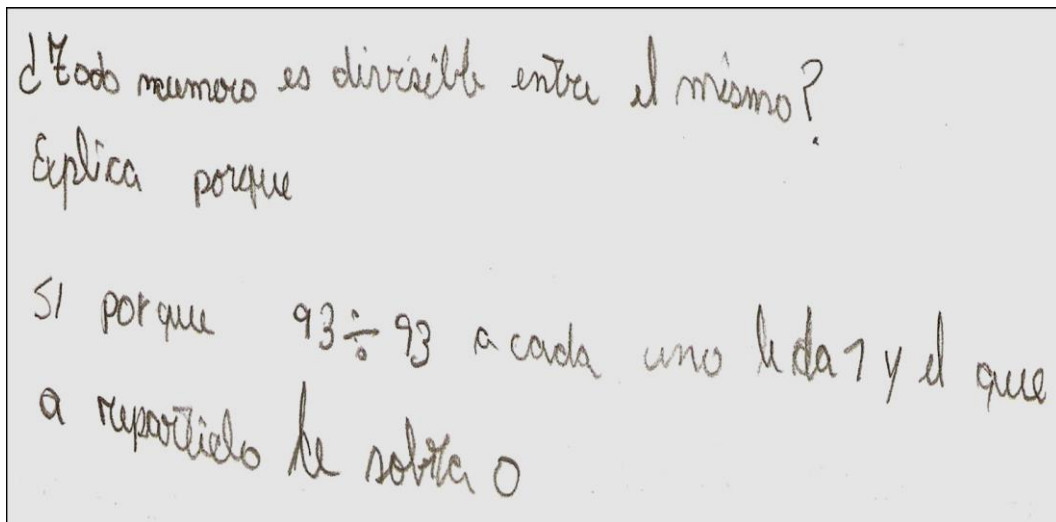 ¿Todo mumero es divisible entre el mismo?
Explica porque
SI porque 93÷93 a cada uno le da 1 y el que
a repartido le sobra 0